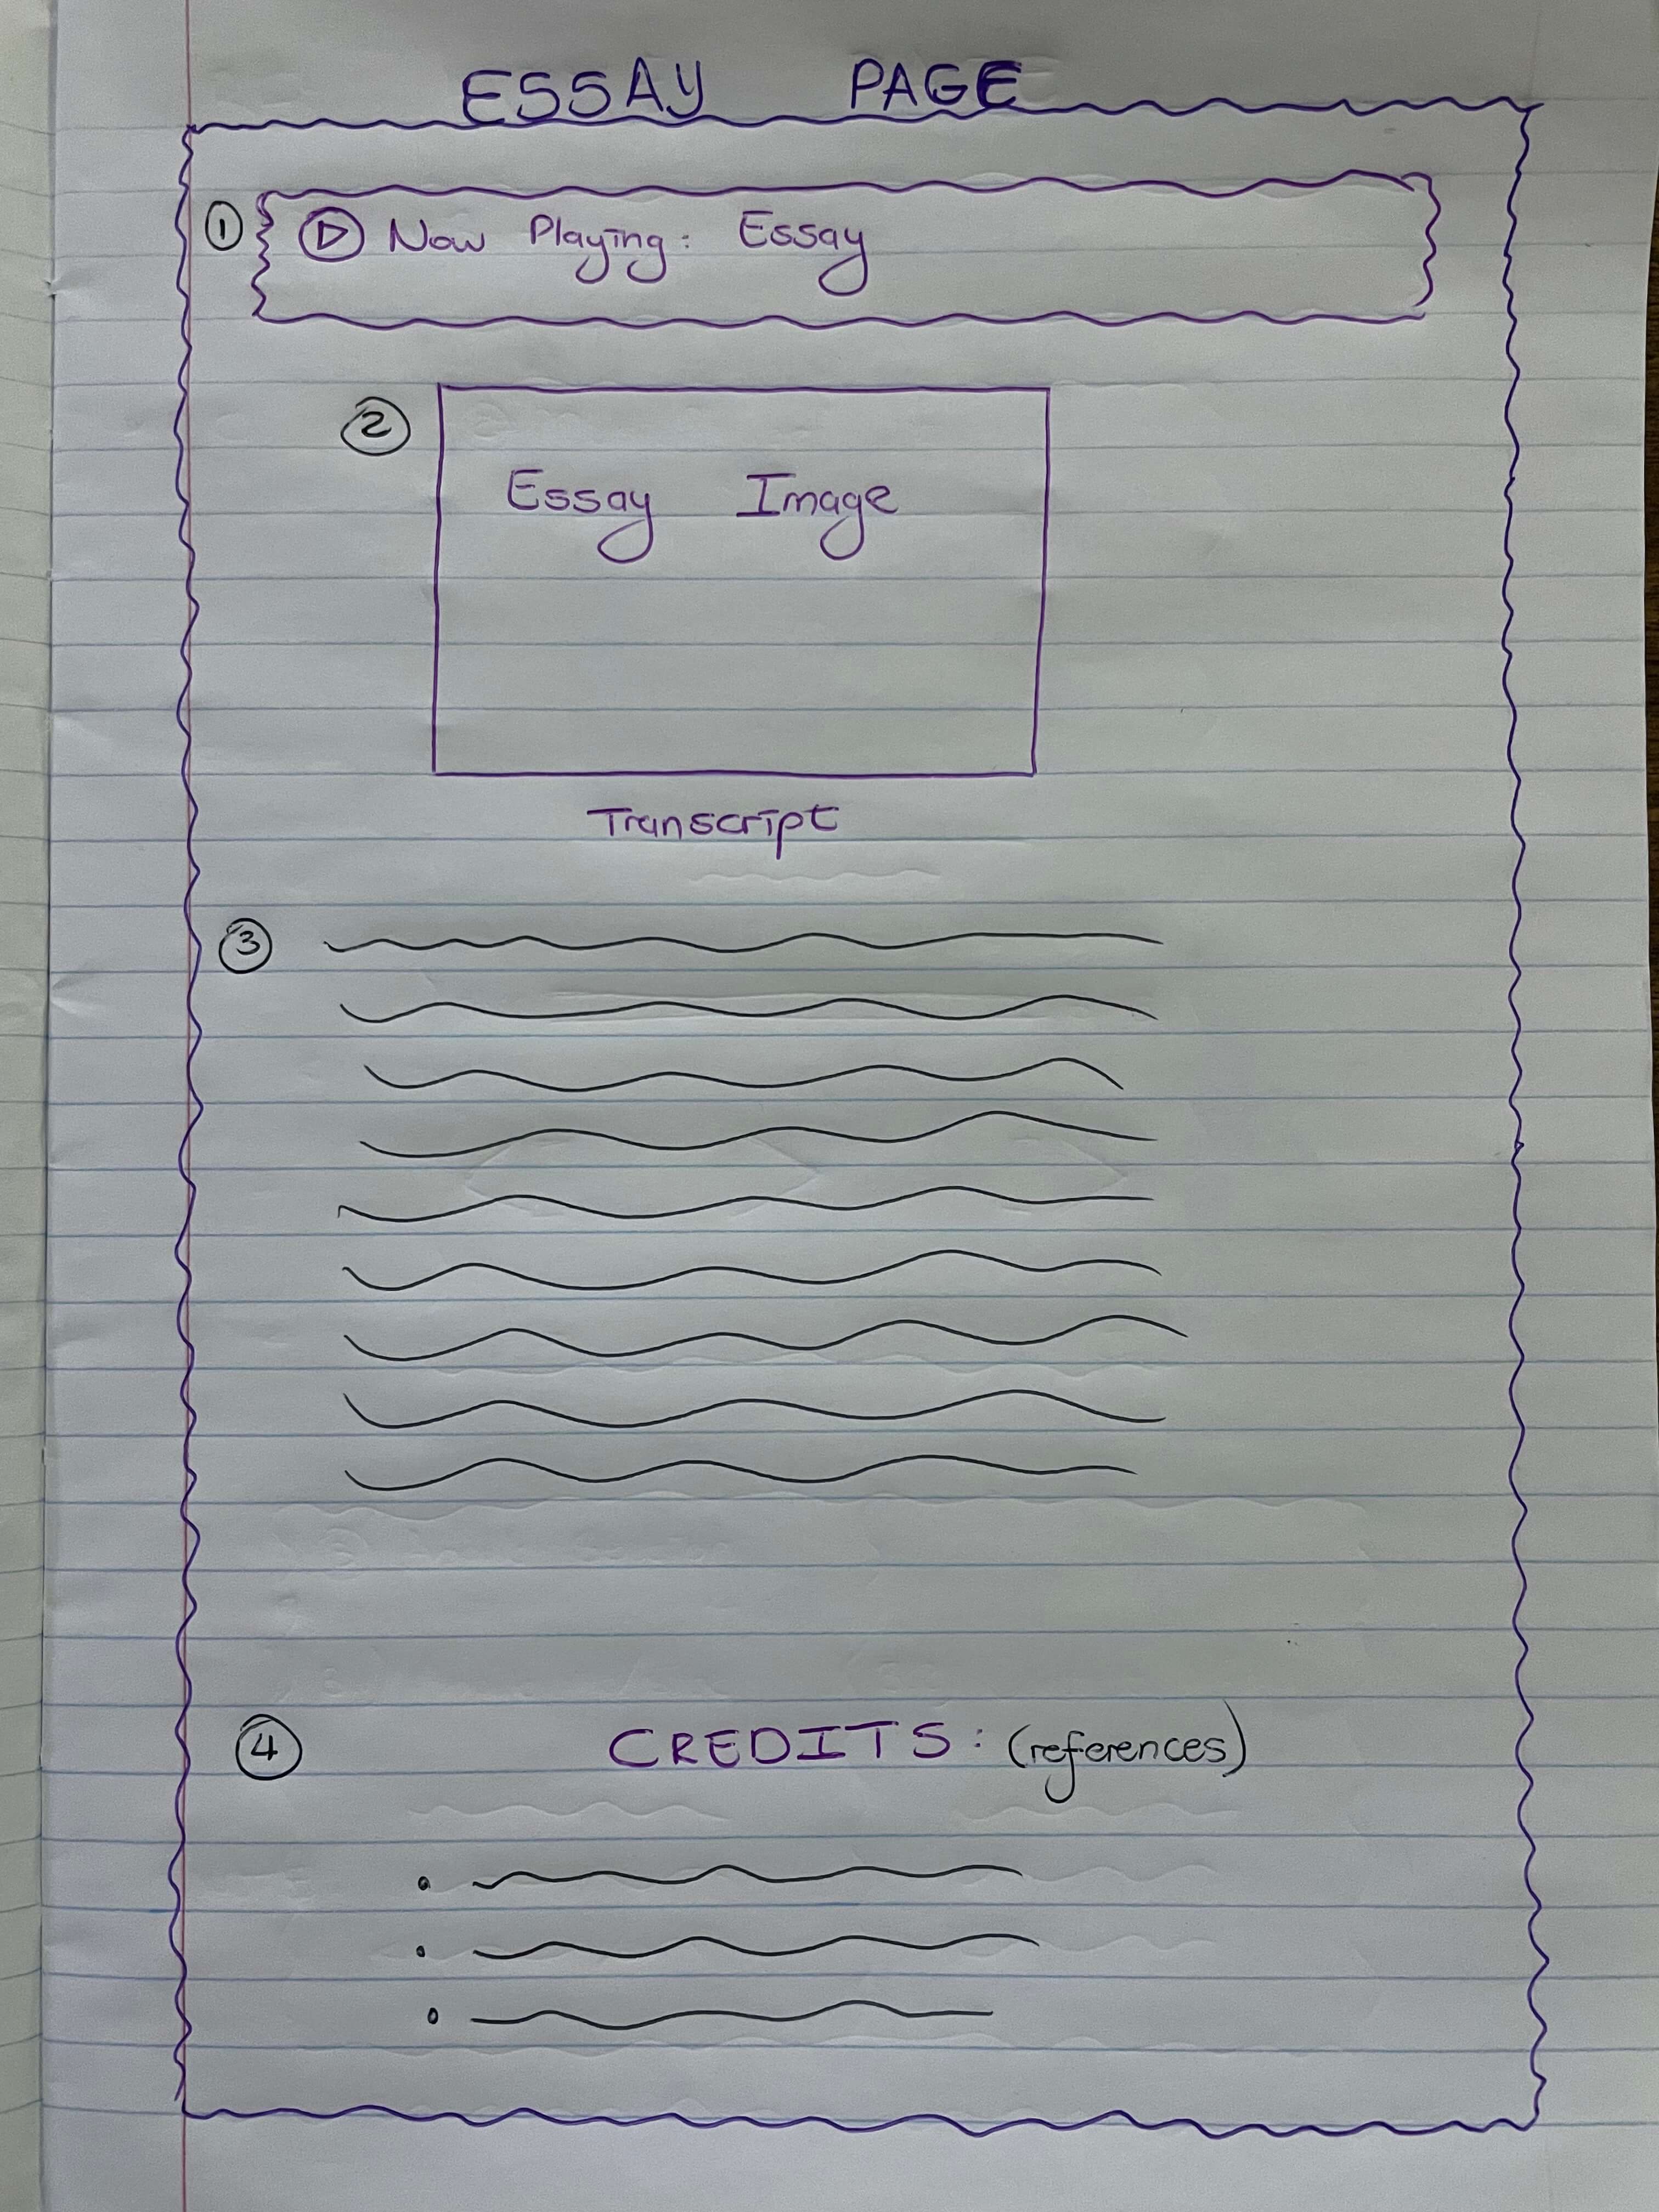 ESSAY PAGE
1 Now Playing: Essay
2
Essay Image
Transcript
3
4 CREDITS: (references)